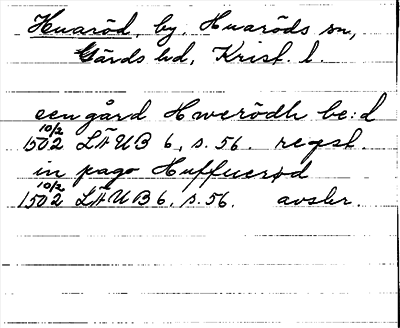 Huaröd, by, Huaröds sn,
Gärds hd, Krist. l.
een gård Hwerödh be:d
10/2 1502 LÄUB 6, s. 56. regest.
in pago Huffuerød
10/2 1502 LÄUB 6, s. 56. avskr.